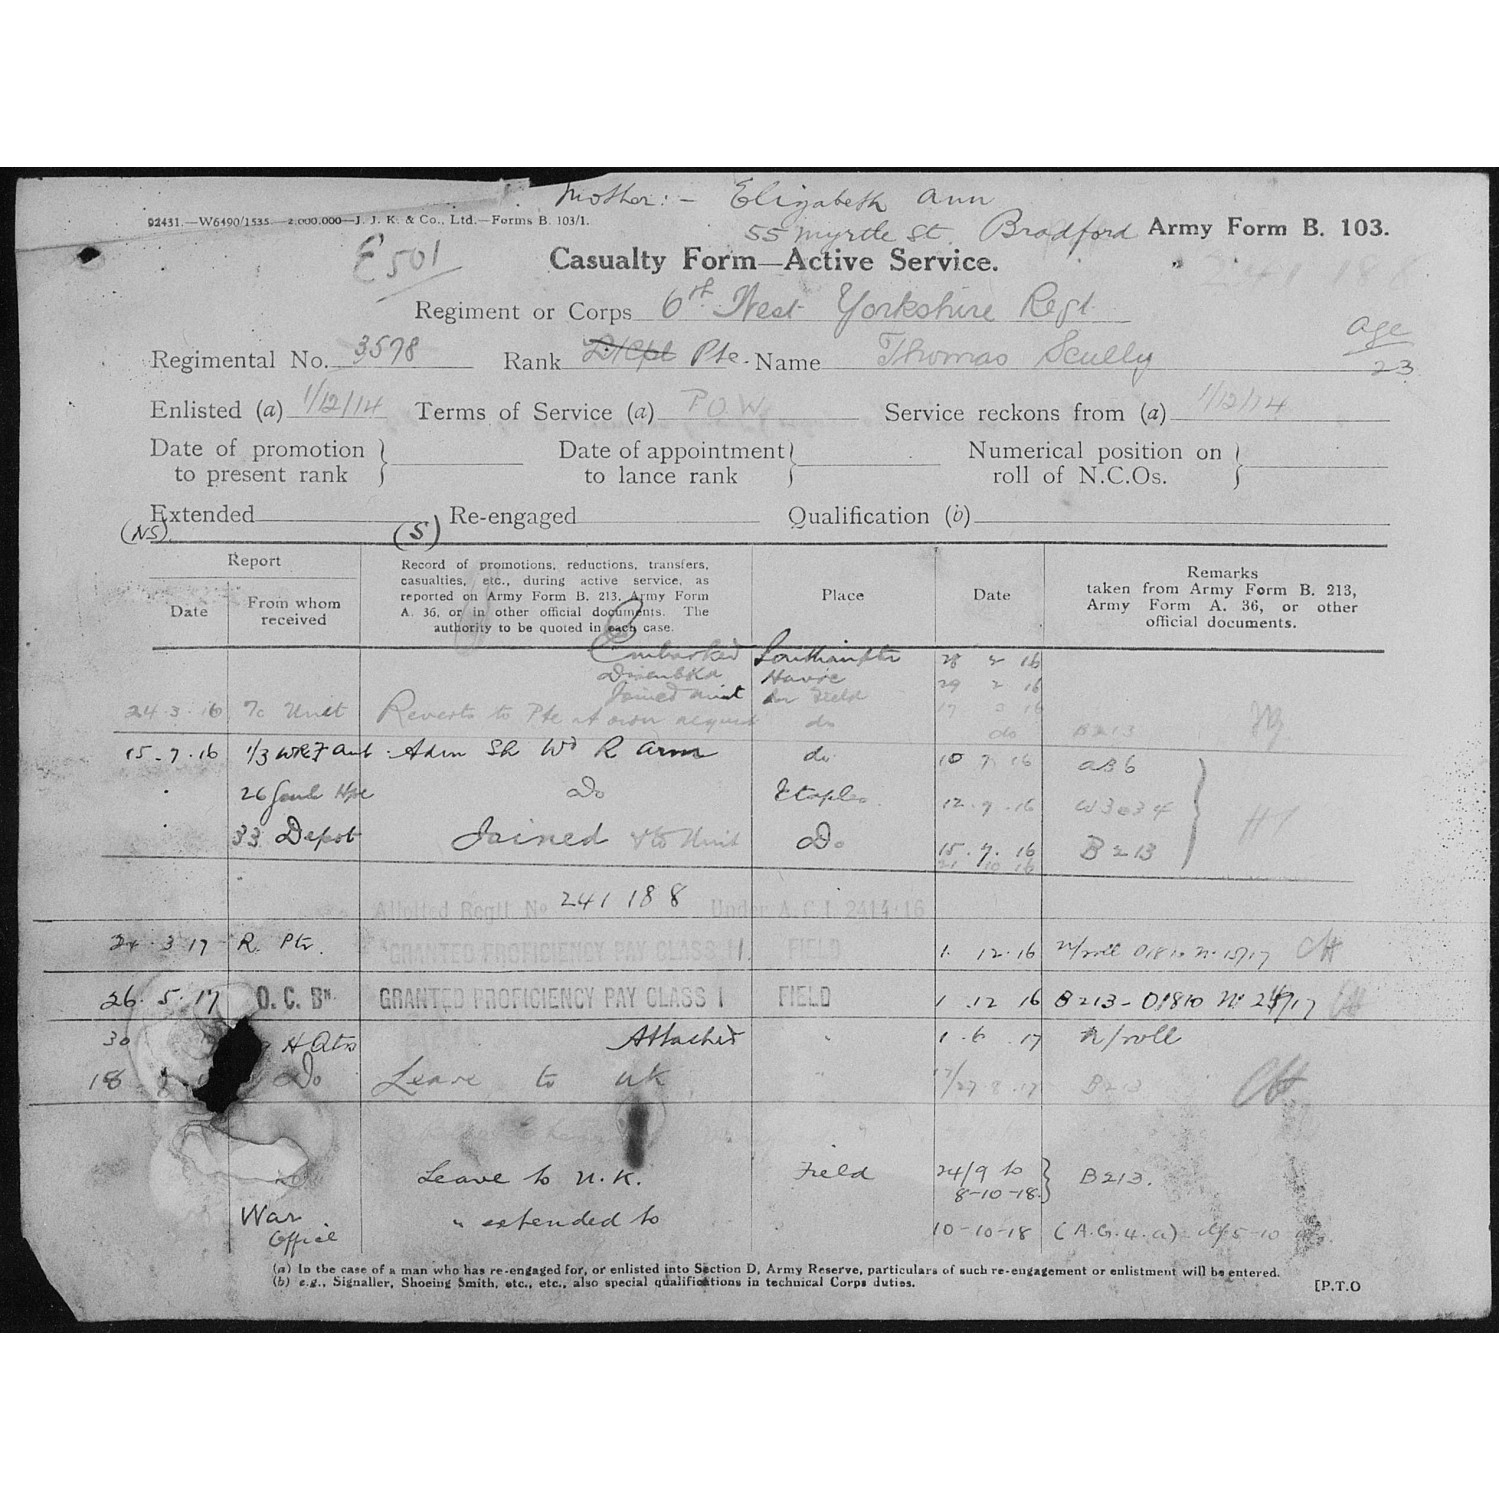 Mother:- Elizabeth Ann
92431.—W6490/1535—2,000,000—J. J. K. & Co., Ltd.—Forms B. 103/1.
55 Myrtle St. Bradford Army Form B. 103.
E501
Casualty Form—Active Service.
241188
Regiment or Corps 6th West Yorkshire Regt
age
23
Regimental No. 3578 Rank L/Cpl Pte. Name Thomas Scully
Enlisted (a) 1/12/14 Terms of Service (a) POW Service reckons from (a) 1/12/14
Date of promotion to present rank
Date of appointment to lance rank
Numerical position on roll of N.C.Os.
Extended Re-engaged Qualification (b)
(NS) (S)
Report
Date
From whom received
Record of promotions, reductions, transfers, casualties, etc., during active service, as reported on Army Form B. 213, Army Form A. 36, or in other official documents. The authority to be quoted in each case.
Place
Date
Remarks taken from Army Form B. 213, Army Form A. 36, or other official documents.
Embarked Southampton 28 2 16
Disembkd Havre 29 2 16
Joined unit In Field 17 3 16
24.3.16 Unit Reverts to Pte at own request do do B213
15.7.16 1/3 WRF Amb Adm Sh Wd R Arm do 10 7 16 A36
26 Genl Hpl Do Etaples 12.7.16 W3034
33 Depot Joined Do 15.7.16 B213
21 10 16
Allotted Regtl. No 241188 Under A.C.I. 2414.16
24.3.17 R. Ptr. GRANTED PROFICIENCY PAY CLASS II FIELD 1.12.16 n/roll O1810
26.5.17 O.C. Bn. GRANTED PROFICIENCY PAY CLASS I FIELD 1.12 16 B213-O1810
30 H Qtrs Attached " 1.6.17 n/roll
18 Do Leave to UK " 17/27.8.17 B213
Leave to U.K. Field 24/9 to 8-10-18 B213.
War Office " extended to 10-10-18 (A.G.4.a)
(a) In the case of a man who has re-engaged for, or enlisted into Section D, Army Reserve, particulars of such re-engagement or enlistment will be entered.
(b) e.g., Signaller, Shoeing Smith, etc., etc., also special qualifications in technical Corps duties.
[P.T.O